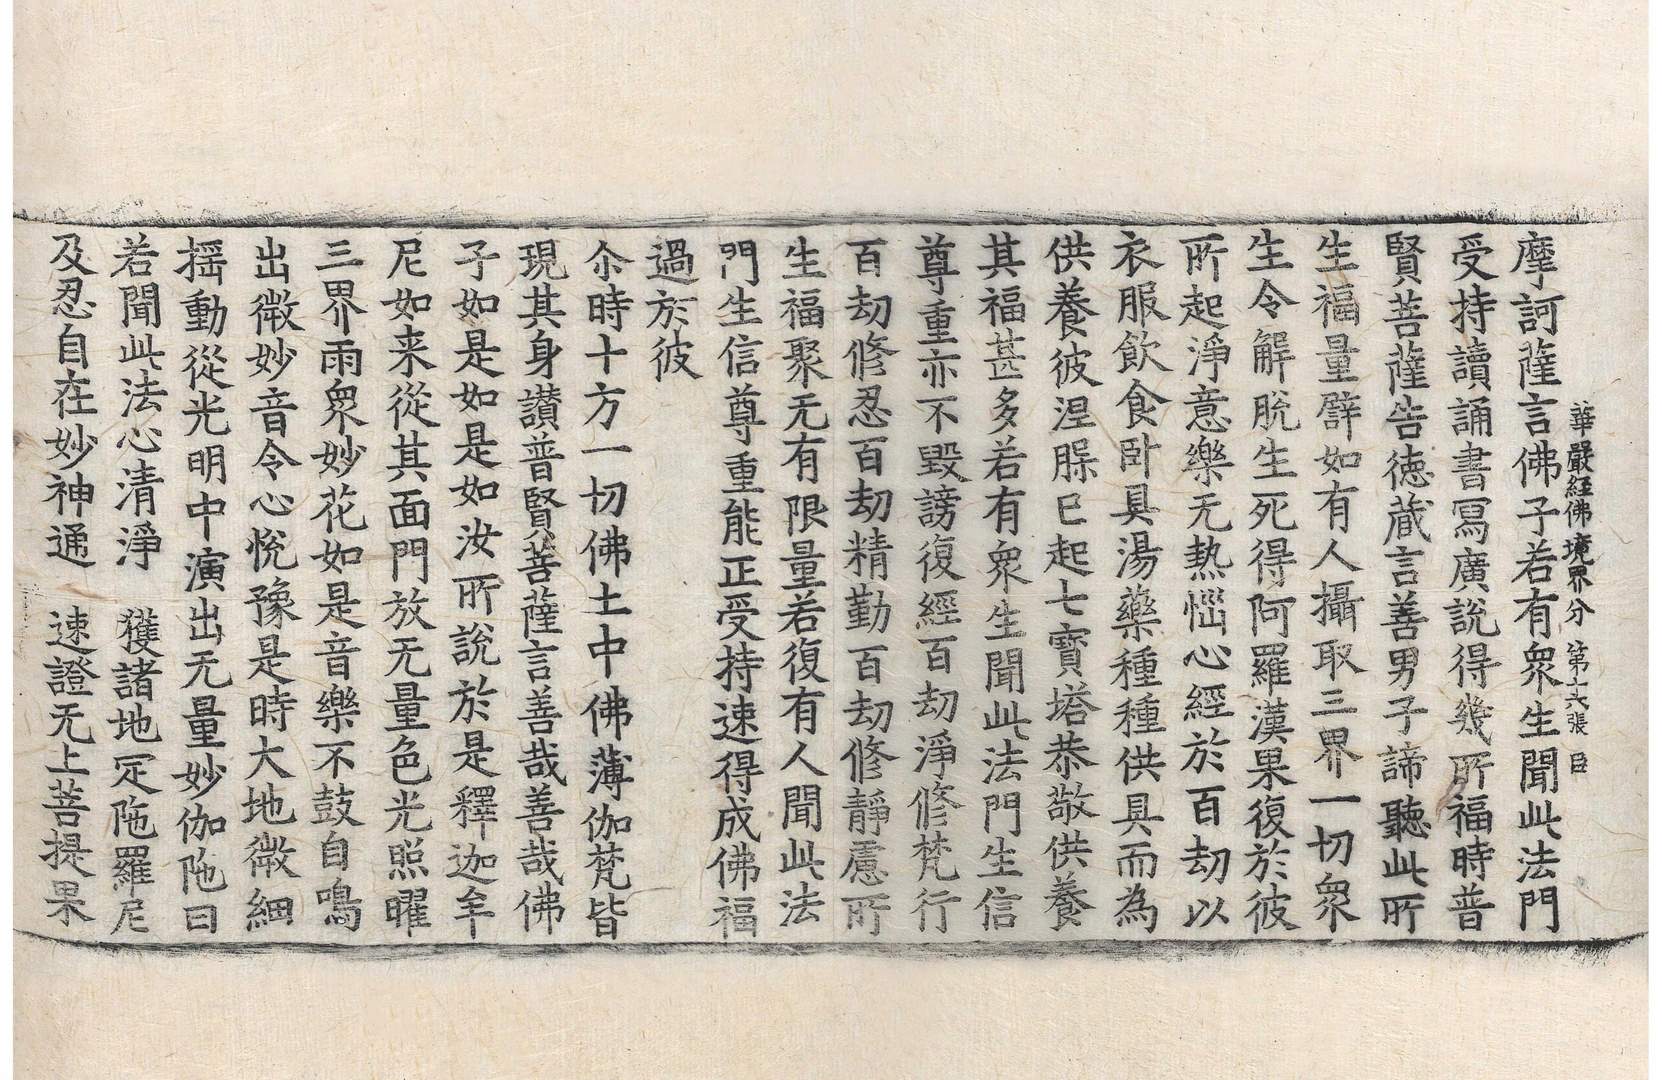 華嚴経佛境界分 第十六張 臣
摩訶薩言佛子若有衆生聞此法門
受持讀誦書寫廣説得幾所福時普
賢菩薩告徳蔵言善男子諦聽此所
生福量譬如有人攝取三界一切衆
生令解脱生死得阿羅漢果復於彼
所起淨意樂无熱惱心經於百劫以
衣服飲食卧具湯藥種種供具而為
供養彼涅槃已起七寳塔恭敬供養
其福甚多若有衆生聞此法門生信
尊重亦不毀謗復經百劫淨修梵行
百劫修忍百劫精勤百劫修靜慮所
生福聚无有限量若復有人聞此法
門生信尊重能正受持速得成佛福
過於彼
尒時十方一切佛土中佛薄伽梵皆
現其身讃普賢菩薩言善哉善哉佛
子如是如是如汝所説於是釋迦牟
尼如来從其面門放无量色光照曜
三界雨衆妙花如是音樂不鼓自鳴
出微妙音令心悅豫是時大地微細
揺動從光明中演出无量妙伽陁曰
若聞此法心清淨　獲諸地定陁羅尼
及忍自在妙神通　速證无上菩提果